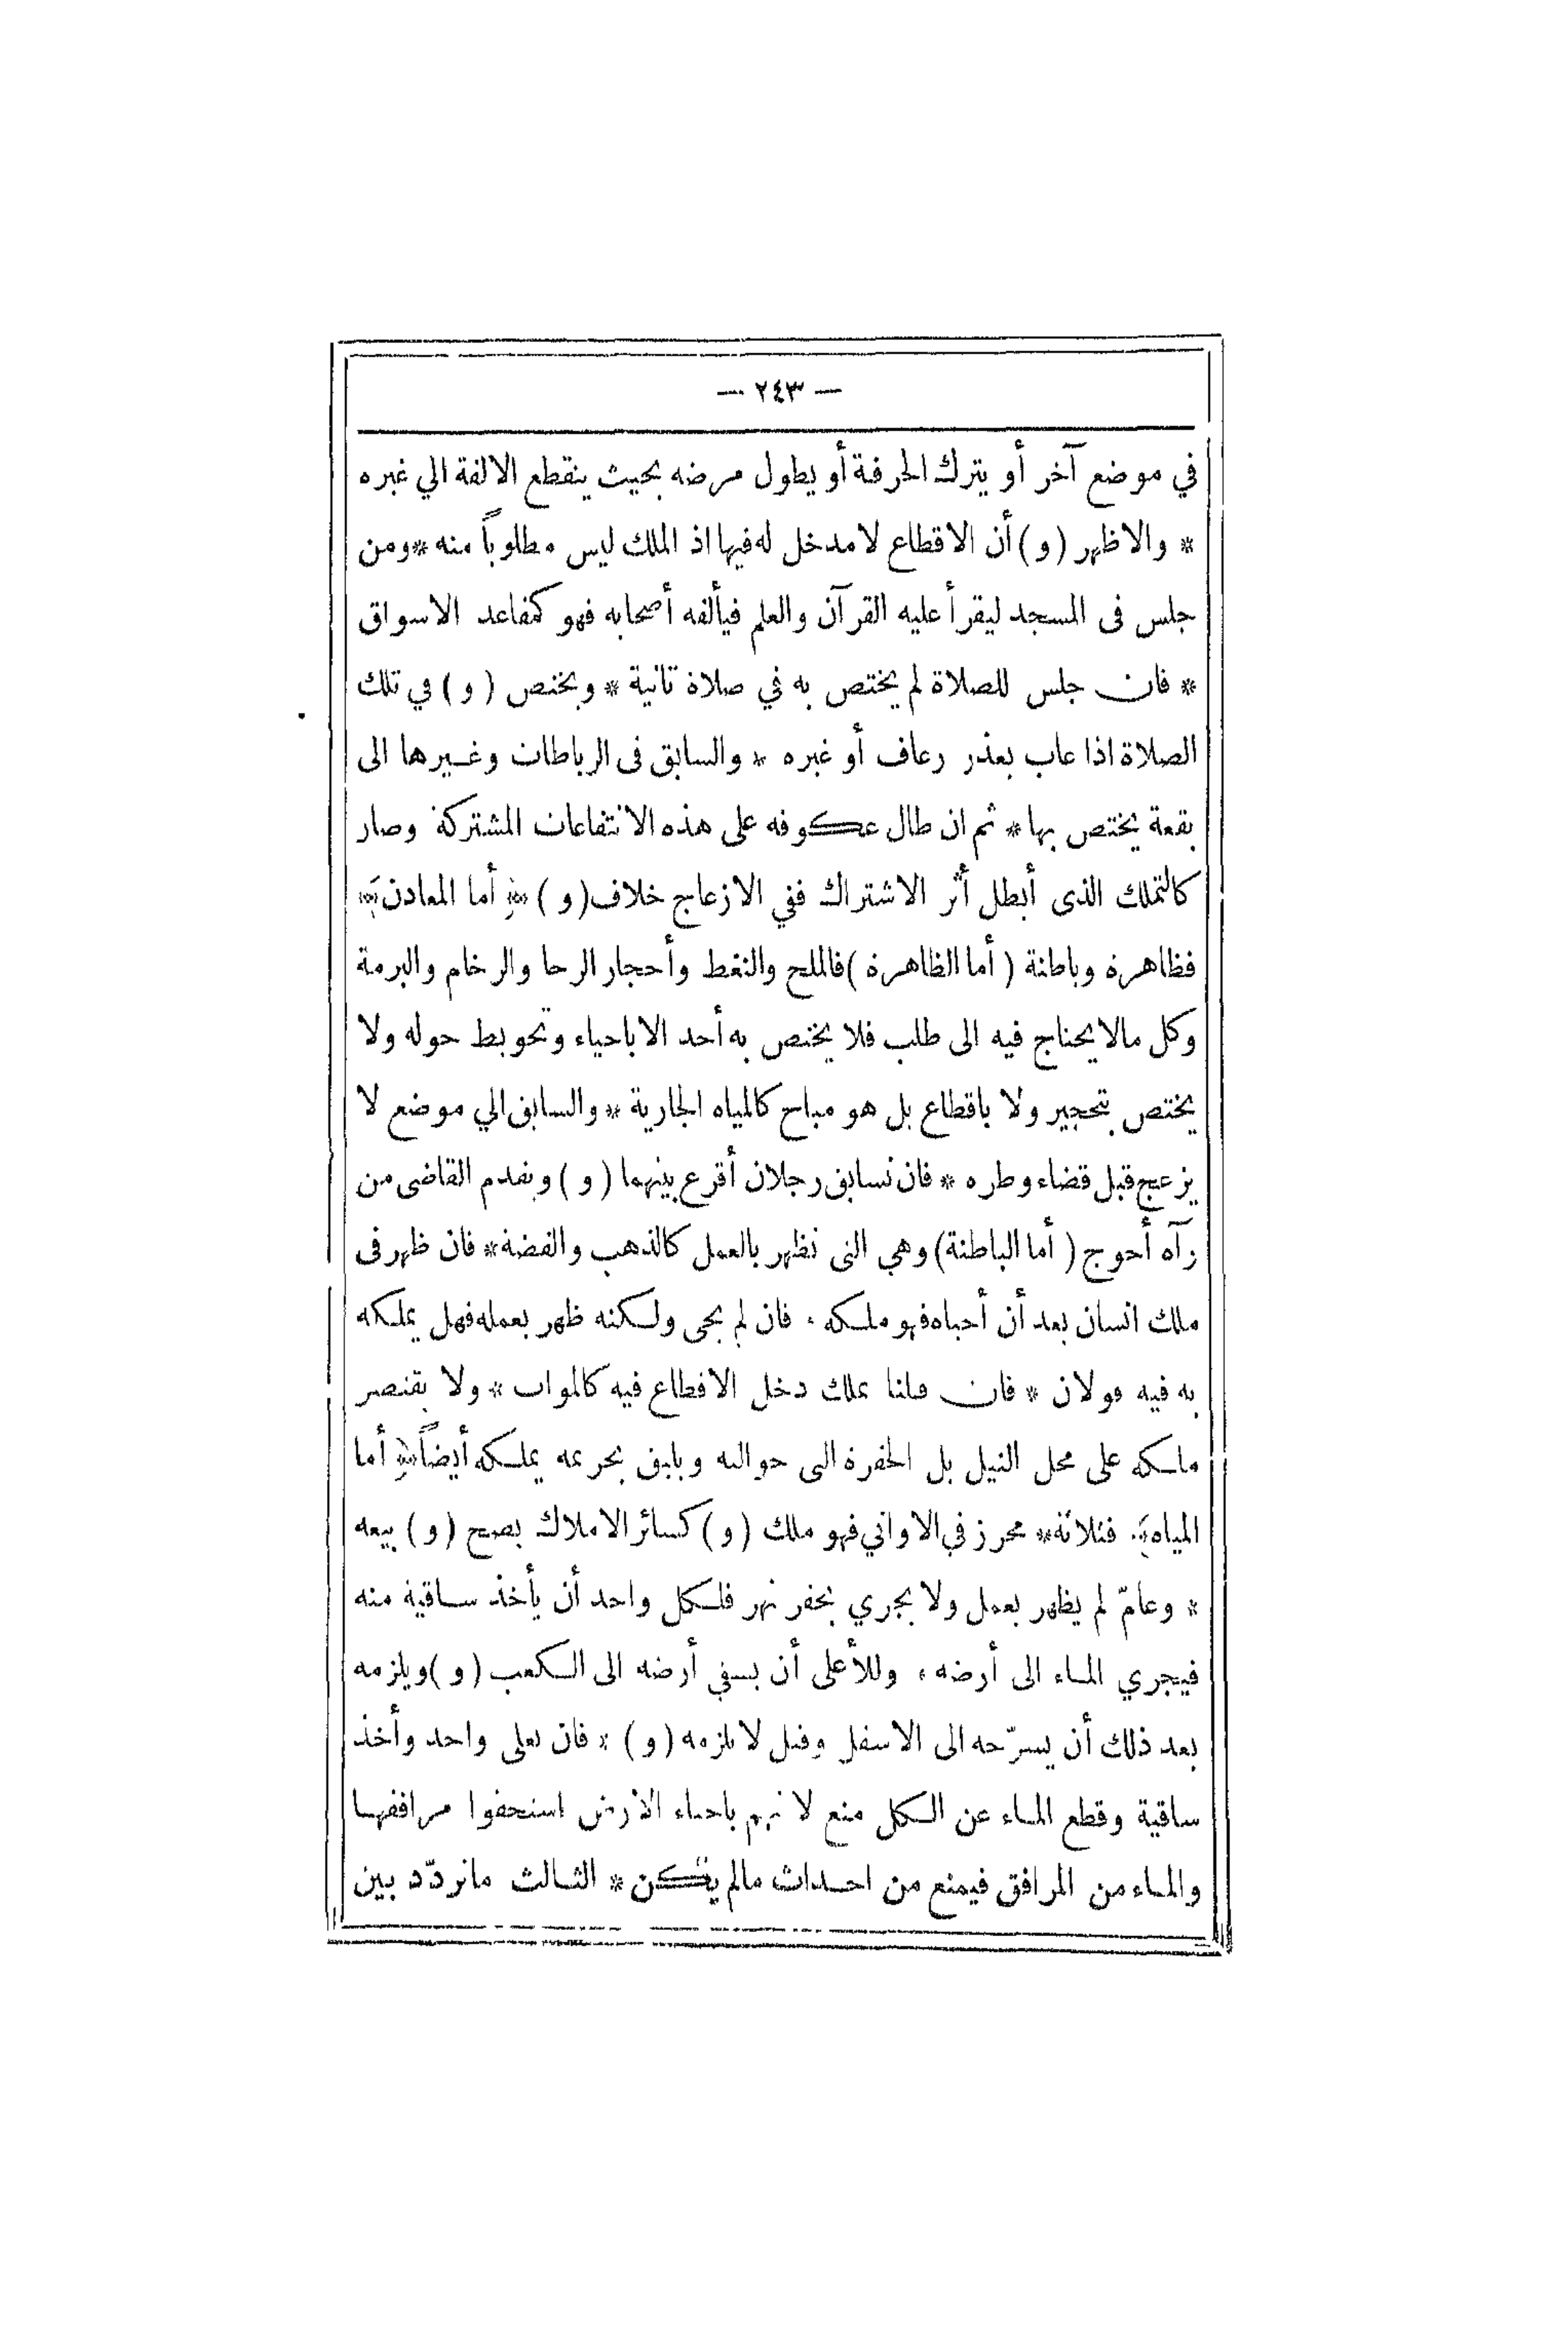 — ٢٤٣ —
في موضع آخر أو يترك الحرفة أو يطول مرضه بحيث ينقطع الالفة الي غيره
* والاظهر (و) أن الاقطاع لا مدخل له فيها اذ الملك ليس مطلوباً منه * ومن
جلس فى المسجد ليقرأ عليه القرآن والعلم فيألفه أصحابه فهو كمقاعد الاسواق
* فان جلس للصلاة لم يختص به في صلاة ثانية * ويختص (و) في تلك
الصلاة اذا غاب بعذر رعاف أو غيره * والسابق فى الرباطات وغيرها الى
بقعة يختص بها * ثم ان طال عكوفه على هذه الانتفاعات المشتركة وصار
كالتملك الذى أبطل أثر الاشتراك ففي الازعاج خلاف (و) ﴿ أما المعادن ﴾
فظاهرة وباطنة (أما الظاهرة) فالملح والنفط وأحجار الرحا والرخام والبرمة
وكل مالا يحتاج فيه الى طلب فلا يختص به أحد الا باحياء وتحويط حوله ولا
يختص بتحجير ولا باقطاع بل هو مباح كالمياه الجارية * والسابق الي موضع لا
يزعج قبل قضاء وطره * فان تسابق رجلان أقرع بينهما (و) ويقدم القاضى من
رآه أحوج (أما الباطنة) وهي التى تظهر بالعمل كالذهب والفضة * فان ظهر فى
ملك انسان بعد أن أحياه فهو ملكه * فان لم يحي ولكنه ظهر بعمله فهل يملكه
به فيه قولان * فان قلنا يملك دخل الاقطاع فيه كالموات * ولا يقتصر
ملكه على محل النيل بل الحفرة التى حواليه ويليق بحريمه يملكه أيضاً ﴿ أما
المياه ﴾ فثلاثة * محرز في الاواني فهو ملك (و) كسائر الاملاك يصح (و) بيعه
* وعامّ لم يظهر بعمل ولا يجري بحفر نهر فلكل واحد أن يأخذ ساقية منه
فيجري الماء الى أرضه * وللأعلى أن يسقي أرضه الى الكعب (و) ويلزمه
بعد ذلك أن يسرّحه الى الاسفل وقيل لا يلزمه (و) * فان تعلى واحد وأخذ
ساقية وقطع الماء عن الكل منع لانهم باحياء الارض استحقوا مرافقها
والماء من المرافق فيمنع من احداث مالم يكن * الثالث ماتردّد بين